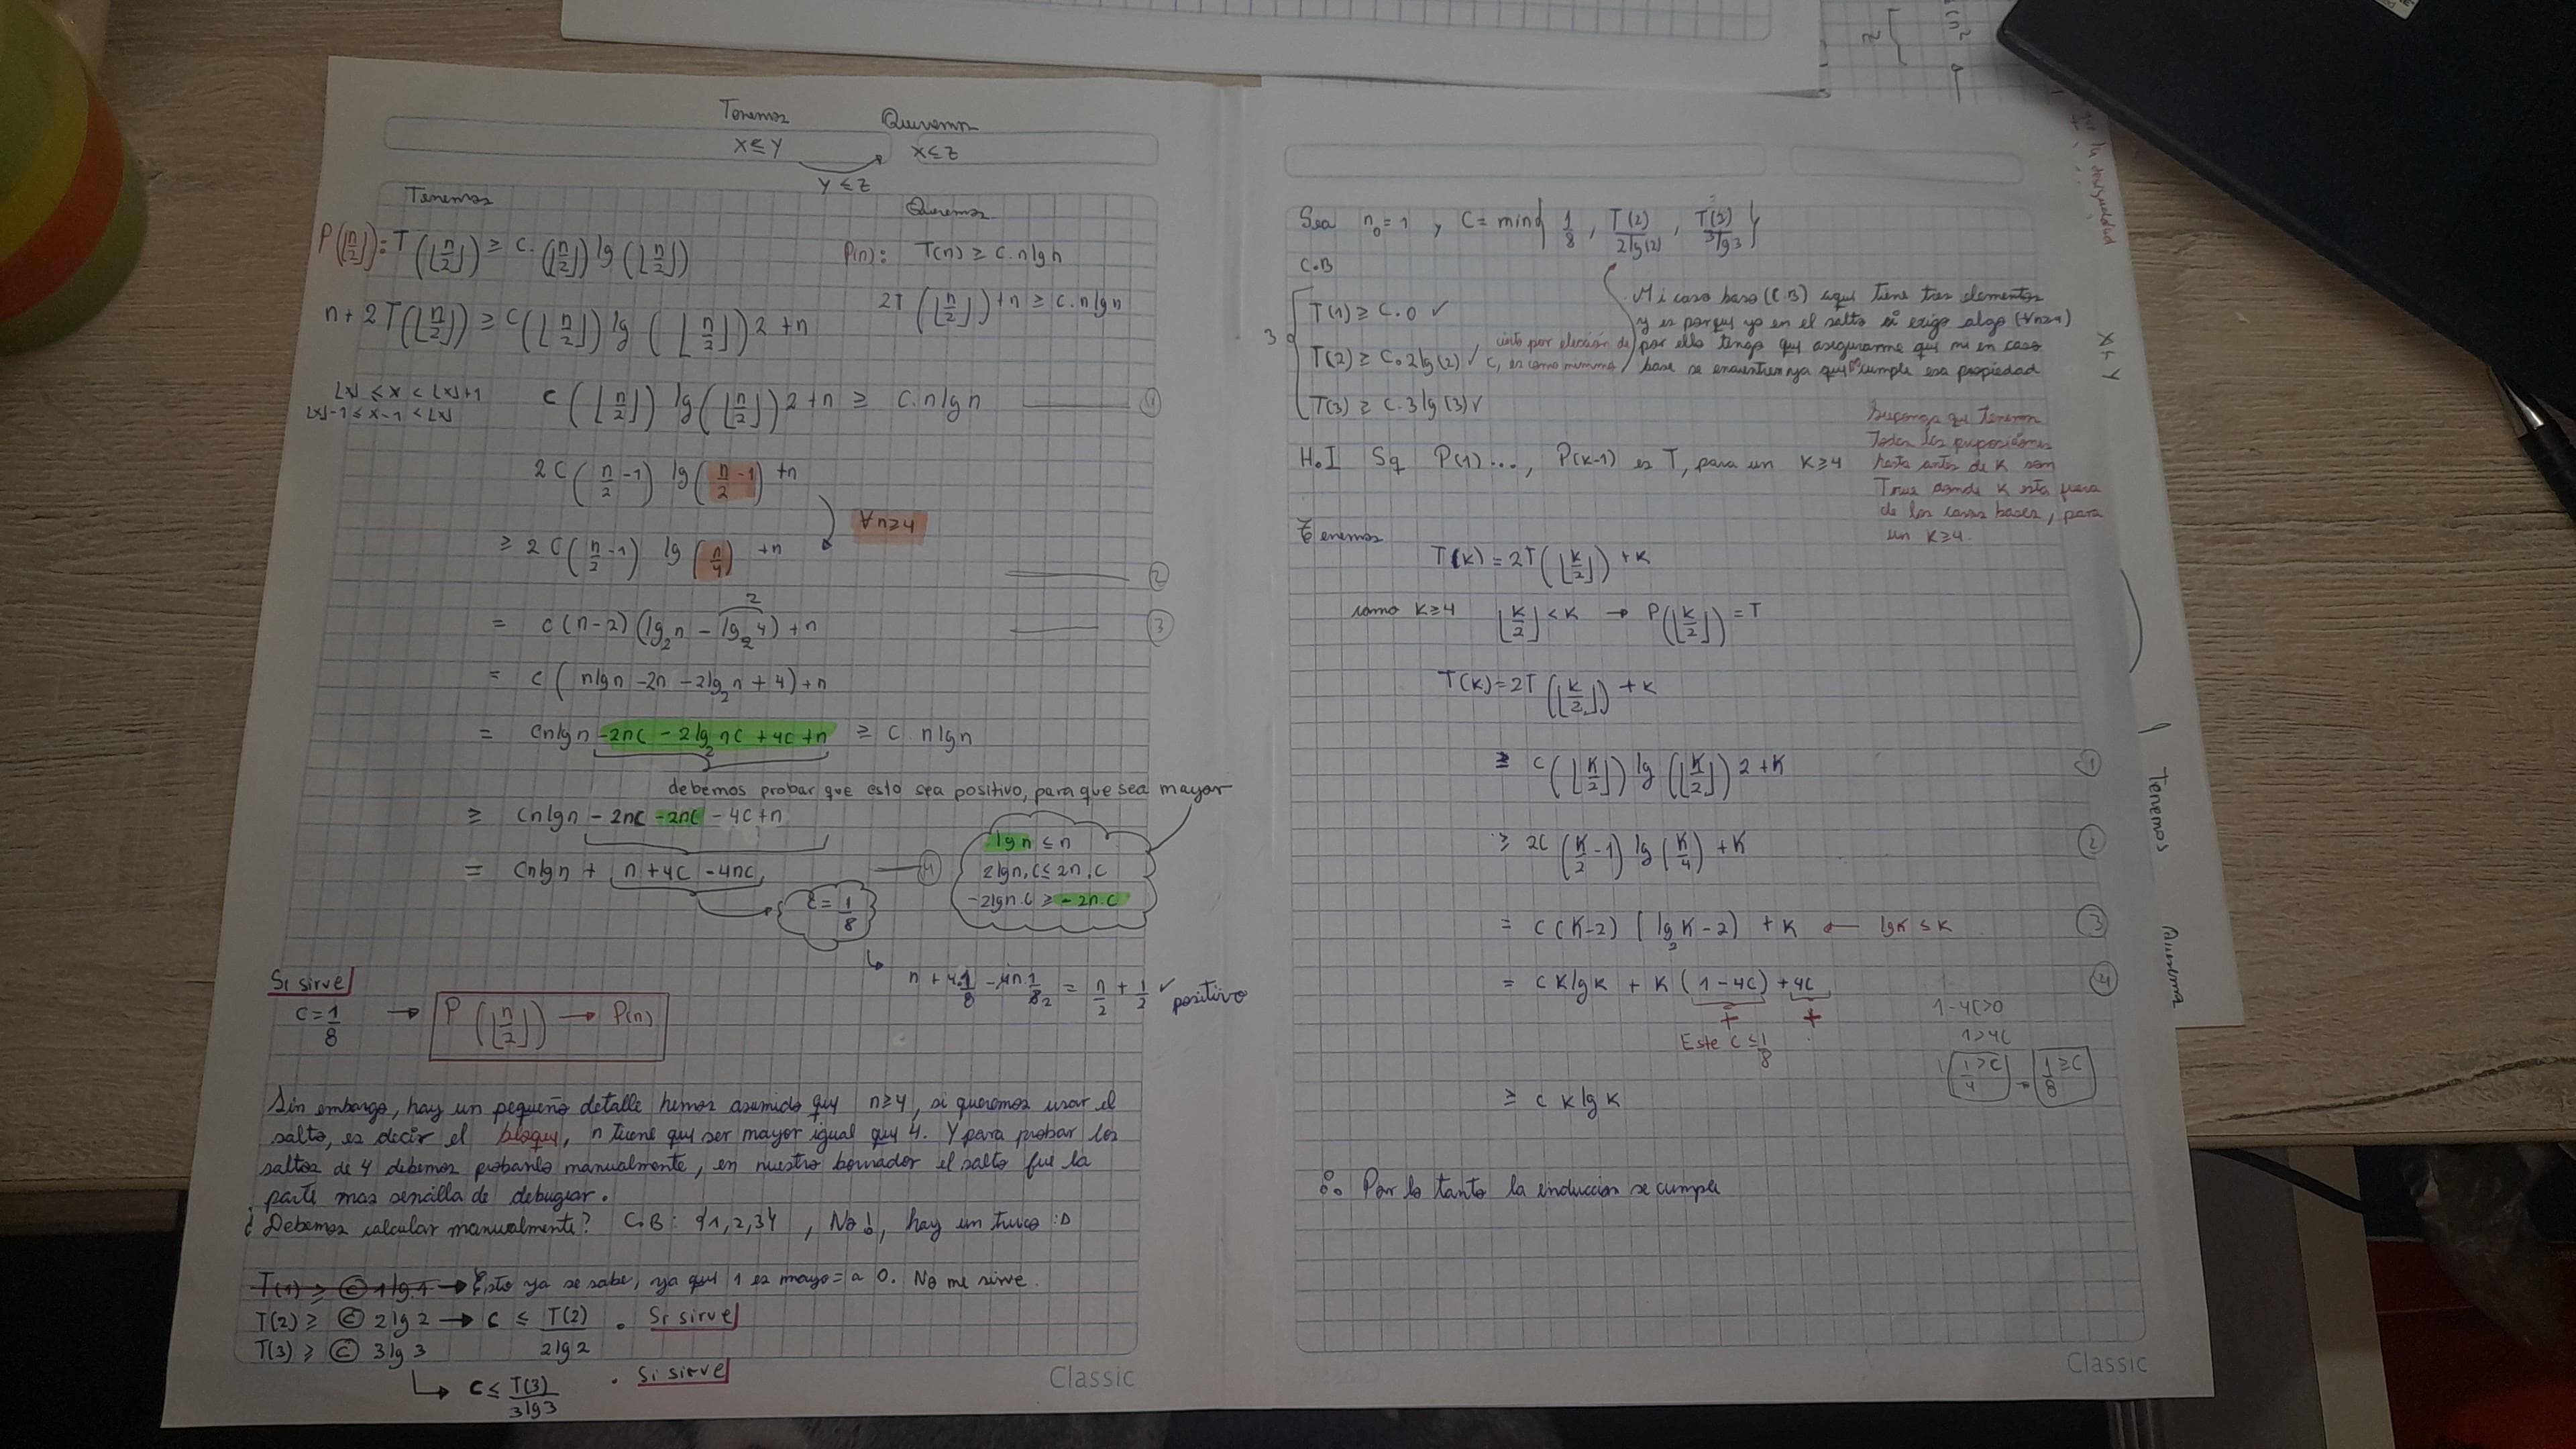 Tenemos
Queremos
X≤Y
X≤Z
Y≤Z
Tenemos
Queremos
P(⌊n/2⌋): T(⌊n/2⌋) ≥ c.(⌊n/2⌋) lg(⌊n/2⌋)
P(n): T(n) ≥ c.nlgn
2T(⌊n/2⌋)+n ≥ c.nlgn
n+2T(⌊n/2⌋) ≥ c(⌊n/2⌋) lg(⌊n/2⌋)2+n
⌊x⌋ ≤ x < ⌊x⌋+1
⌊x⌋-1 ≤ x-1 < ⌊x⌋
c(⌊n/2⌋) lg(⌊n/2⌋)2+n ≥ c.nlgn ①
2c(n/2 -1) lg(n/2 -1) +n
∀n≥4
≥ 2c(n/2 -1) lg(n/4) +n ②
2
= c(n-2)(lg₂n - lg₂4)+n ③
= c(nlgn -2n -2lg₂n +4)+n
= cnlgn -2nc -2lg₂nc +4c +n ≥ c.nlgn
debemos probar que esto sea positivo, para que sea mayor
≥ cnlgn - 2nc -2nc - 4c+n
= cnlgn + n+4c -4nc ④
lgn ≤ n
2lgn.c ≤ 2n.c
-2lgn.c ≥ -2n.c
c = 1/8
n + 4.1/8 - 4n.1/8₂ = n/2 + 1/2 ✓ positivo
Si sirve
c=1/8 → P(⌊n/2⌋) → P(n)
Sin embargo, hay un pequeño detalle hemos asumido que n≥4, si queremos usar el
salto, es decir el bloque, n tiene que ser mayor igual que 4. Y para probar los
saltos de 4 debemos probarlo manualmente, en nuestro borrador el salto fue la
parte mas sencilla de debugear.
¿Debemos calcular manualmente? C.B: {1,2,3} , No!, hay un truco :D
T(1) ≥ c 1lg1 → Esto ya se sabe, ya que 1 es mayo=a 0. No me sirve.
T(2) ≥ c 2lg2 → c ≤ T(2)/2lg2 . Si sirve
T(3) ≥ c 3lg3
c ≤ T(3)/3lg3 . Si sirve
Classic
Sea n₀=1 , C=min{ 1/8 , T(2)/2lg(2) , T(3)/3lg3 }
C.B
3
T(1) ≥ c.0 ✓
T(2) ≥ c.2lg(2) ✓
T(3) ≥ c.3lg(3) ✓
cierto por elección de
c, es como minimo
Mi caso base (C.B) aqui tiene tres elementos
y es porque yo en el salto si exigo algo (∀n≥4)
por ello tengo que asegurarme que mi en caso
base se encuentren ya que cumple esa propiedad
H.I Sq P(1)..., P(k-1) es T, para un k≥4
Suponga que tenemos
Todas las proposiciones
hasta antes de k son
True donde k esta fuera
de los casos bases, para
un k≥4.
Tenemos
T(k)=2T(⌊k/2⌋)+k
como k≥4 ⌊k/2⌋<k → P(⌊k/2⌋)=T
T(k)=2T(⌊k/2⌋)+k
≥ c(⌊k/2⌋) lg(⌊k/2⌋)2+k ①
≥ 2c(k/2 -1) lg(k/4)+k ②
= c(k-2)(lg₂k-2)+k ← lgk ≤ k ③
= cklgk + k(1-4c)+4c ④
+ +
Este c ≤ 1/8
1-4c>0
1>4c
1/4 >c → 1/8 ≥c
≥ c klgk
∴ Por lo tanto la induccion se cumple
Classic
la desigualdad
X≤Y
Tenemos